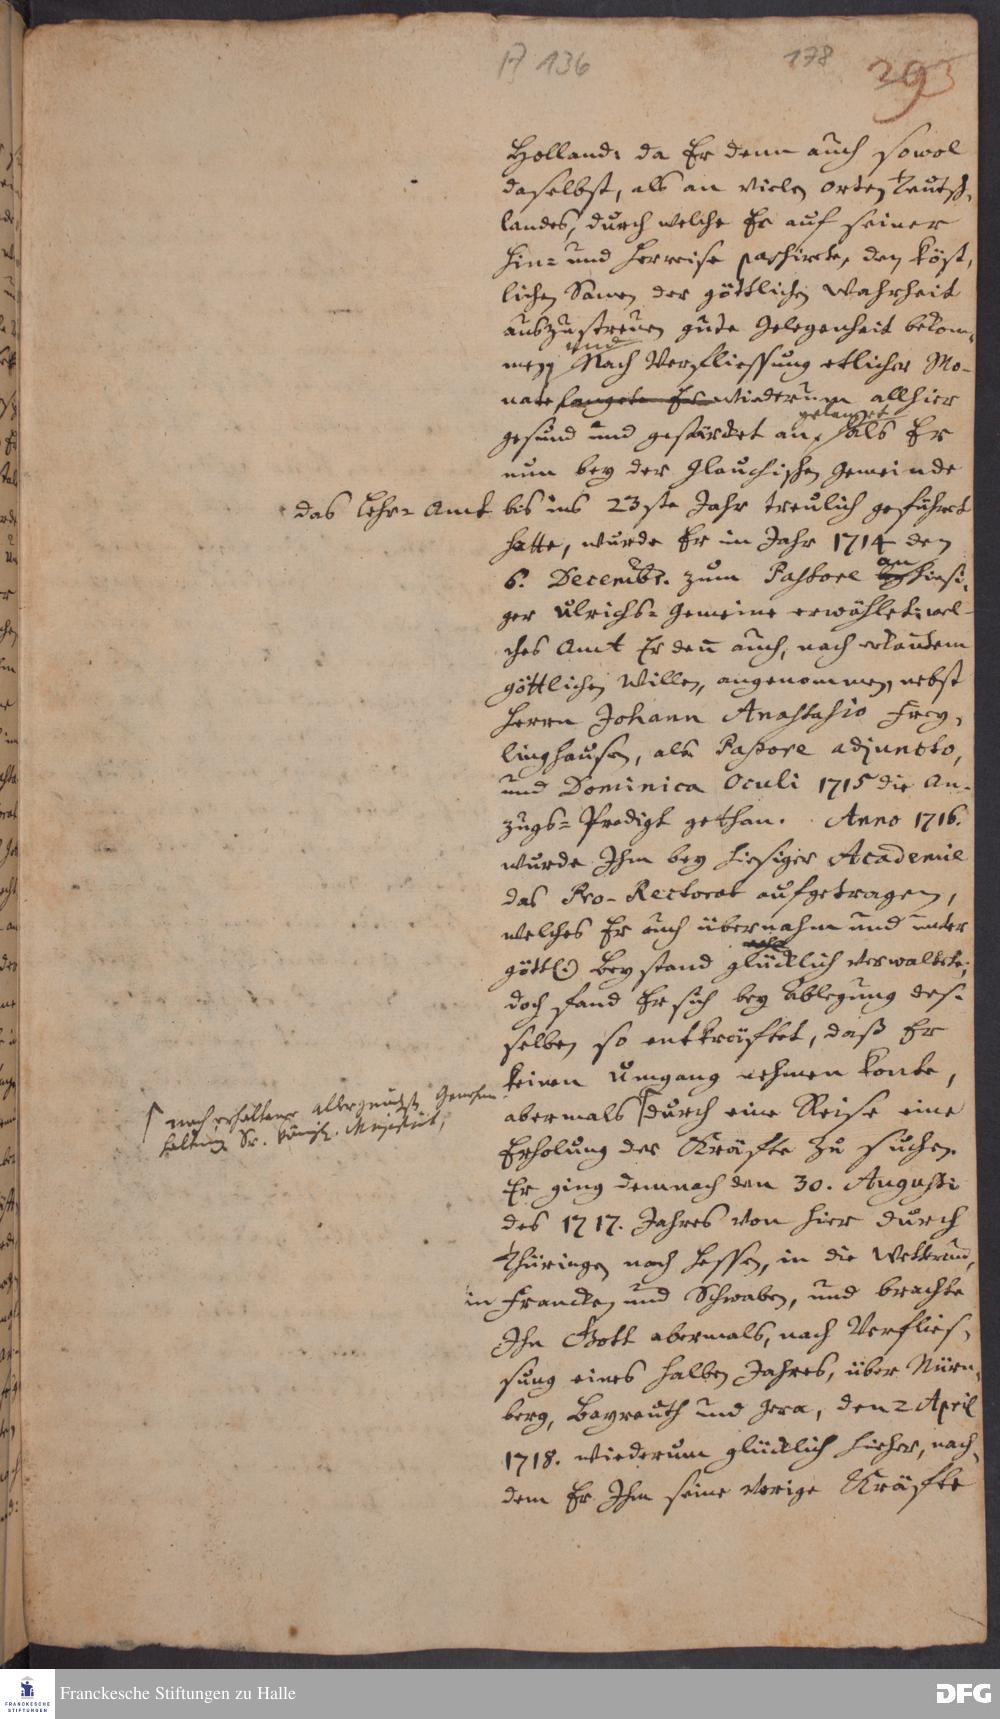 A 136
178
293
Holland: da Er denn auch sowol
daselbst, als an vielen Orten Teutsch-
landes, durch welche Er auf seiner
hin- und herreise passirete, den köst-
lichen Samen der göttlichen Wahrheit
auszustreuen gute Gelegenheit bekom-
men und Nach Verfliessung etlicher Mo-
nate langete Er wiederum allhier
gesund und gestärcket an gelanget als Er
nun bey der Glauchischen Gemeinde
das Lehr-Amt bis ins 23ste Jahr treulich geführet
hatte, wurde Er im Jahr 1714 den
6. Decembr. zum Pastore an hiesi-
ger Ulrichs-Gemeine erwählet: wel-
ches Amt Er den̅ auch, nach erkan̅tem
göttlichen Willen, angenommen, nebst
Herrn Johann Anastasio Frey-
linghausen, als Pastore adjuncto,
und Dominica Oculi 1715 die An-
zugs-Predigt gethan. Anno 1716.
wurde Ihm bey hiesiger Academie
das Pro-Rectorat aufgetragen,
welches Er auch übernahm und unter
göttl. Beystand glücklich verwaltete;
doch fand Er sich bey Ablegung des-
selben so entkräftet, daß Er
keinen Umgang nehmen konte,
abermals durch eine Reise eine
nach erhaltener allergnädigst. Genehm-
haltung Sr. Königl. Majestät,
Erholung der Kräfte zu suchen.
Er ging demnach den 30. Augusti
des 1717. Jahres von hier durch
Thüringen nach Hessen, in die Wetterau,
in Francken und Schwaben, und brachte
Ihn Gott abermals, nach Verflies-
sung eines halben Jahres, über Nürn-
berg, Bayreuth und Gera, den 2 April
1718. wiederum glücklich hieher, nach-
dem Er Ihm seine vorige Kräfte
FRANCKESCHE
STIFTUNGEN
Franckesche Stiftungen zu Halle
DFG